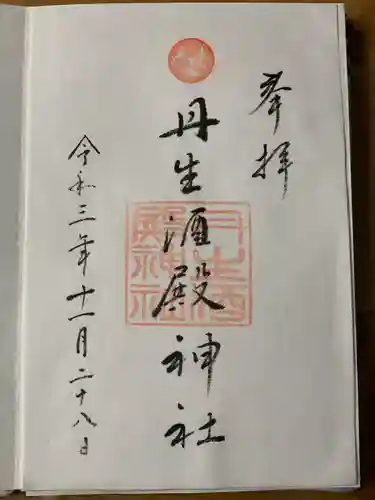 奉拝
丹生酒殿神社
丹生酒殿神社
令和三年十一月二十八日